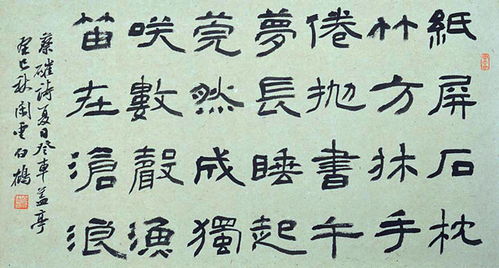 紙屏石枕
竹方牀手
倦抛書午
夢長睡起
莞然成獨
咲數聲漁
笛在滄浪
蔡確詩夏日登車蓋亭
巳秋雲白鶴